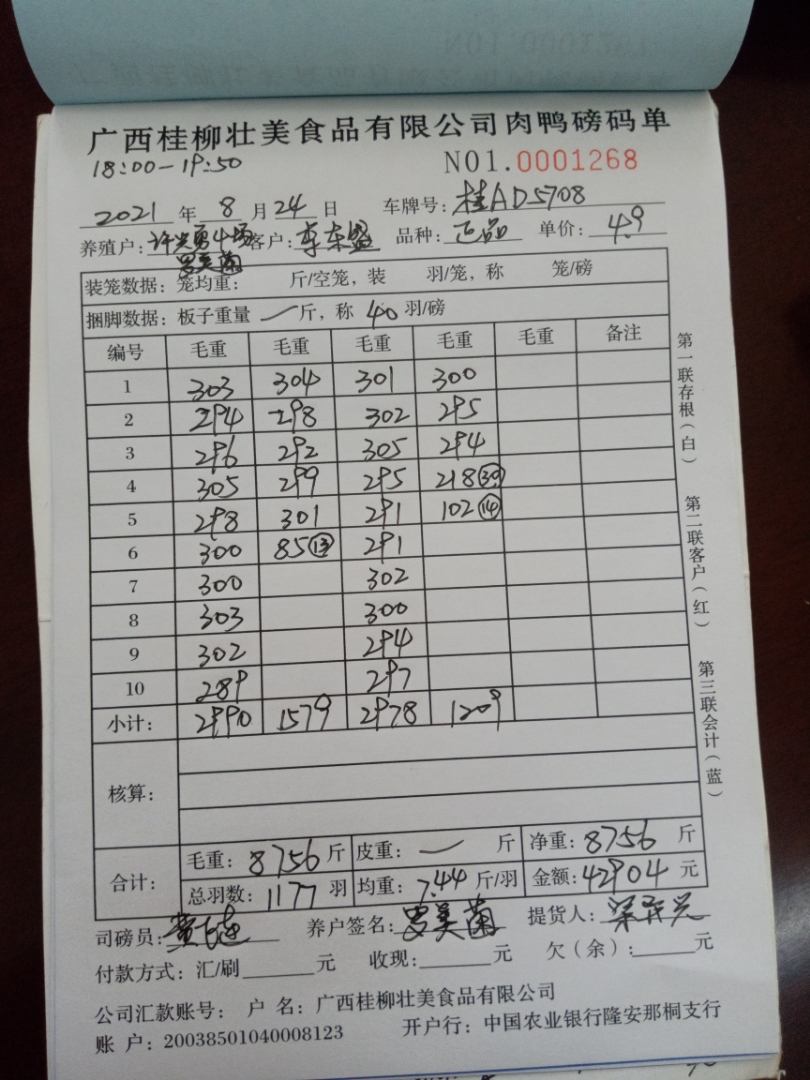 广西桂柳壮美食品有限公司肉鸭磅码单
18:00-19:50 NO1.0001268
2021 年 8 月 24 日 车牌号: 桂AD5708
养殖户: 许兴勇4场 客户: 李东盛 品种: 正品 单价: 4.9
罗美菌
装笼数据: 笼均重: 斤/空笼, 装 羽/笼, 称 笼/磅
捆脚数据: 板子重量 — 斤, 称 40 羽/磅
编号 毛重 毛重 毛重 毛重 毛重 备注
1 303 304 301 300
2 294 298 302 295
3 296 292 305 294
4 305 299 295 218 ㊴
5 298 301 291 102 ⑭
6 300 85 ⑬ 291
7 300 302
8 303 300
9 302 294
10 289 297
小计: 2990 1579 2978 1209
核算:
合计: 毛重: 8756 斤 皮重: — 斤 净重: 8756 斤
总羽数: 1177 羽 均重: 7.44 斤/羽 金额: 42904 元
司磅员: 养户签名: 罗美菌 提货人:
付款方式: 汇/刷 元 收现: 元 欠(余): 元
公司汇款账号: 户 名: 广西桂柳壮美食品有限公司
账 户: 20038501040008123 开户行: 中国农业银行隆安那桐支行
第一联存根(白)
第二联客户(红)
第三联会计(蓝)